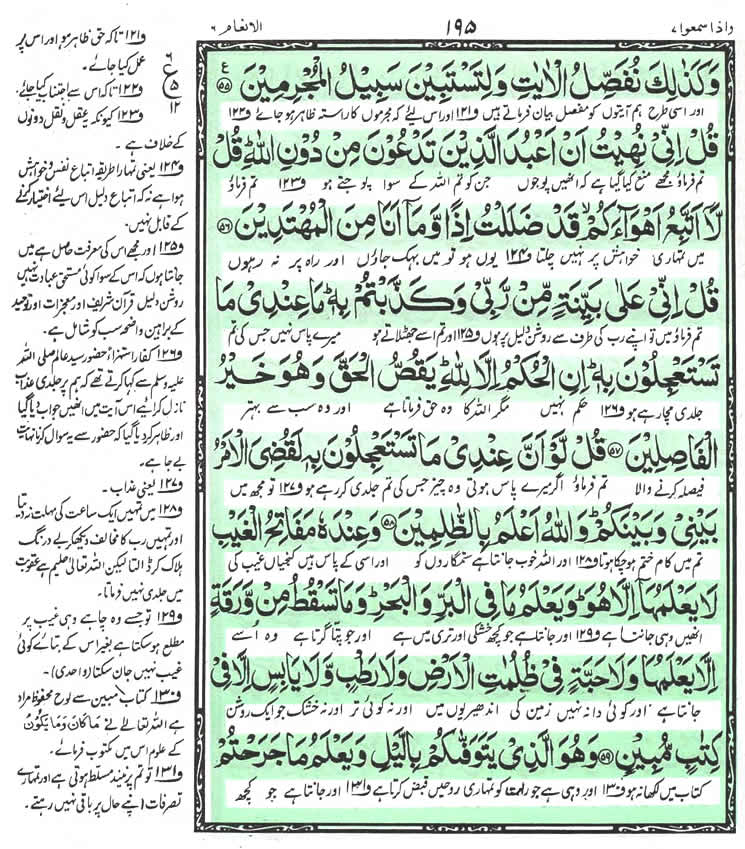 واذا سمعوا ۷
۱۹۵
الانعام ۶
وَكَذٰلِكَ نُفَصِّلُ الْاٰيٰتِ وَلِتَسْتَبِيْنَ سَبِيْلُ الْمُجْرِمِيْنَ ۝۵۵
اور اسی طرح ہم آیتوں کو مفصل بیان فرماتے ہیں و۱۲۱ اور اس لئے کہ مجرموں کا راستہ ظاہر ہو جائے و۱۲۲
قُلْ اِنِّيْ نُهِيْتُ اَنْ اَعْبُدَ الَّذِيْنَ تَدْعُوْنَ مِنْ دُوْنِ اللّٰهِ ؕ قُلْ
تم فرماؤ مجھے منع کیا گیا ہے کہ انھیں پوجوں جن کو تم اللہ کے سوا پوجتے ہو و۱۲۳ تم فرماؤ
لَّاۤ اَتَّبِعُ اَهْوَآءَكُمْ ۙ قَدْ ضَلَلْتُ اِذًا وَّمَاۤ اَنَا مِنَ الْمُهْتَدِيْنَ ۝۵۶
میں تمہاری خواہش پر نہیں چلتا و۱۲۴ یوں ہو تو میں بہک جاؤں اور راہ پر نہ رہوں
قُلْ اِنِّيْ عَلٰى بَيِّنَةٍ مِّنْ رَّبِّيْ وَكَذَّبْتُمْ بِهٖ ؕ مَا عِنْدِيْ مَا
تم فرماؤ میں تو اپنے رب کی طرف سے روشن دلیل پر ہوں و۱۲۵ اور تم اسے جھٹلاتے ہو میرے پاس نہیں جس کی تم
تَسْتَعْجِلُوْنَ بِهٖ ؕ اِنِ الْحُكْمُ اِلَّا لِلّٰهِ ؕ يَقُصُّ الْحَقَّ وَهُوَ خَيْرُ
جلدی مچا رہے ہو و۱۲۶ حکم نہیں مگر اللہ کا وہ حق فرماتا ہے اور وہ سب سے بہتر
الْفَاصِلِيْنَ ۝۵۷ قُلْ لَّوْ اَنَّ عِنْدِيْ مَا تَسْتَعْجِلُوْنَ بِهٖ لَقُضِيَ الْاَمْرُ
فیصلہ کرنے والا تم فرماؤ اگر میرے پاس ہوتی وہ چیز جس کی تم جلدی کر رہے ہو و۱۲۷ تو مجھ میں
بَيْنِيْ وَبَيْنَكُمْ ؕ وَاللّٰهُ اَعْلَمُ بِالظّٰلِمِيْنَ ۝۵۸ وَعِنْدَهٗ مَفَاتِحُ الْغَيْبِ
تم میں کام ختم ہو چکا ہوتا و۱۲۸ اور اللہ خوب جانتا ہے ستمگاروں کو اور اسی کے پاس ہیں کنجیاں غیب کی
لَا يَعْلَمُهَاۤ اِلَّا هُوَ ؕ وَيَعْلَمُ مَا فِي الْبَرِّ وَالْبَحْرِ ؕ وَمَا تَسْقُطُ مِنْ وَّرَقَةٍ
انھیں وہی جانتا ہے و۱۲۹ اور جانتا ہے جو کچھ خشکی اور تری میں ہے اور جو پتا گرتا ہے وہ اُسے
اِلَّا يَعْلَمُهَا وَلَا حَبَّةٍ فِيْ ظُلُمٰتِ الْاَرْضِ وَلَا رَطْبٍ وَّلَا يَابِسٍ اِلَّا فِيْ
جانتا ہے اور کوئی دانہ نہیں زمین کی اندھیریوں میں اور نہ کوئی تر اور نہ خشک جو ایک روشن
كِتٰبٍ مُّبِيْنٍ ۝۵۹ وَهُوَ الَّذِيْ يَتَوَفّٰىكُمْ بِالَّيْلِ وَيَعْلَمُ مَا جَرَحْتُمْ
کتاب میں لکھا نہ ہو و۱۳۰ اور وہی ہے جو رات کو تمہاری روحیں قبض کرتا ہے و۱۳۱ اور جانتا ہے جو کچھ
و۱۲۱ تاکہ حق ظاہر ہو اور اس پر
عمل کیا جائے۔
و۱۲۲ تاکہ اس سے اجتناب کیا جائے۔
و۱۲۳ کیونکہ یہ عقل و نقل دونوں
کے خلاف ہے۔
و۱۲۴ یعنی تمہارا طریقہ اتباع نفس و خواہش
ہوا ہے نہ کہ اتباع دلیل اس لئے اختیار کرنے
کے قابل نہیں۔
و۱۲۵ اور مجھے اس کی معرفت حاصل ہے میں
جانتا ہوں کہ اس کے سوا کوئی مستحق عبادت نہیں
روشن دلیل قرآن شریف اور معجزات اور توحید
کے براہین واضحہ سب کو شامل ہے۔
و۱۲۶ کفار استہزاءً حضور سید عالم صلی اللہ
علیہ وسلم سے کہا کرتے تھے کہ ہم پر جلدی عذاب
نازل کرائیے اس آیت میں انھیں جواب دیا گیا
اور ظاہر کر دیا گیا کہ حضور سے یہ سوال کرنا نہایت
بے جا ہے۔
و۱۲۷ یعنی عذاب۔
و۱۲۸ میں تمہیں ایک ساعت کی مہلت نہ دیتا
اور تمہیں رب کا مخالف دیکھ کر بے درنگ
ہلاک کر ڈالتا لیکن اللہ تعالیٰ حلیم ہے عقوبت
میں جلدی نہیں فرماتا۔
و۱۲۹ تو جسے وہ چاہے وہی غیب پر
مطلع ہو سکتا ہے بغیر اس کے بتائے کوئی
غیب نہیں جان سکتا (واحدی)۔
و۱۳۰ کتاب مبین سے لوح محفوظ مراد
ہے اللہ تعالیٰ نے مَا كَانَ وَمَا يَكُوْنُ
کے علوم اس میں مکتوب فرمائے۔
و۱۳۱ تو تم پر نیند مسلط ہوتی ہے اور تمہارے
تصرفات اپنے حال پر باقی نہیں رہتے۔